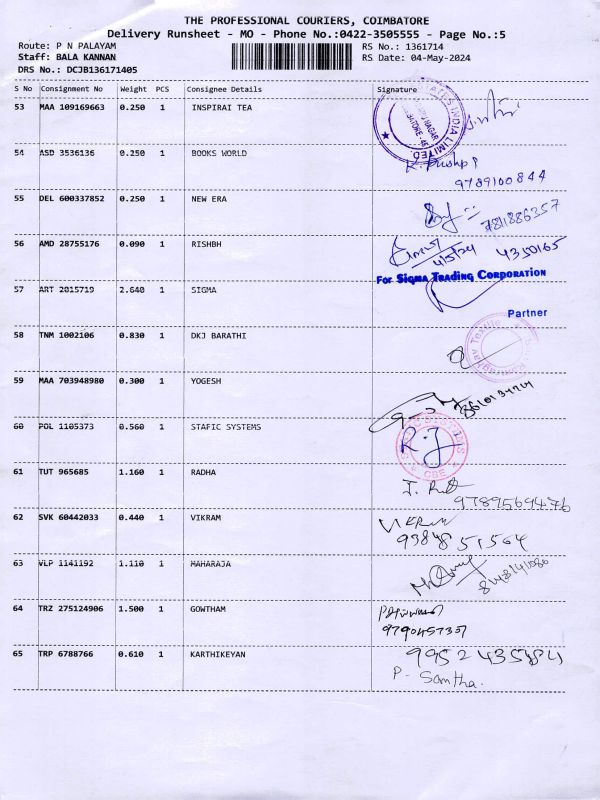 THE PROFESSIONAL COURIERS, COIMBATORE
Delivery Runsheet - MO - Phone No.:0422-3505555 - Page No.:5
Route: P N PALAYAM
RS No.: 1361714
Staff: BALA KANNAN
RS Date: 04-May-2024
DRS No.: DCJB136171405
S No Consignment No Weight PCS Consignee Details Signature
53 MAA 109169663 0.250 1 INSPIRAI TEA
INDIA LIMITED
54 ASD 3536136 0.250 1 BOOKS WORLD
K. Pushp
9789100844
55 DEL 600337852 0.250 1 NEW ERA
7811886357
56 AMD 28755176 0.090 1 RISHBH
4/5/24 4350165
For SIGMA TRADING CORPORATION
57 ART 2015719 2.640 1 SIGMA
Partner
58 TNM 1002106 0.830 1 DKJ BARATHI
59 MAA 703948980 0.300 1 YOGESH
60 POL 1105373 0.560 1 STAFIC SYSTEMS
R.J
CBE
61 TUT 965685 1.160 1 RADHA
9789569476
62 SVK 60442033 0.440 1 VIKRAM
VIKRAM
63 VLP 1141192 1.110 1 MAHARAJA
64 TRZ 275124906 1.500 1 GOWTHAM
9790457307
65 TRP 6788766 0.610 1 KARTHIKEYAN
P. Santha.